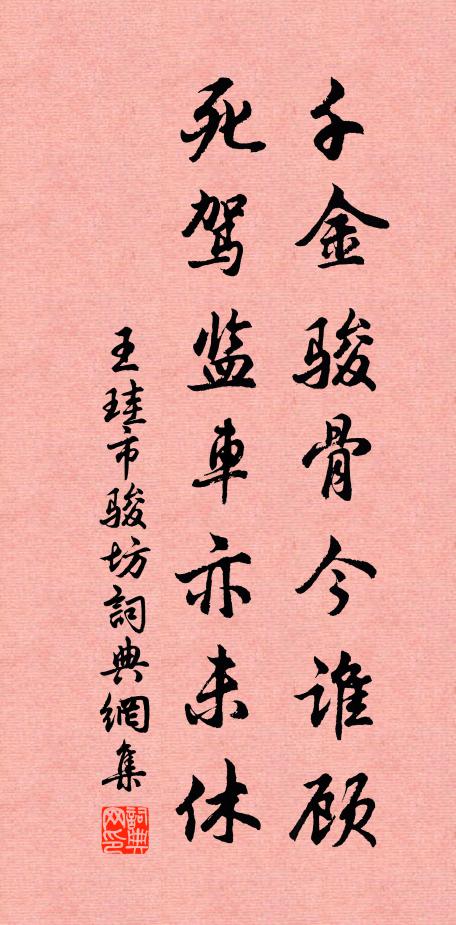 千金骏骨今谁顾
死驾监车亦未休
王珪市骏坊词典網集
詞典网印